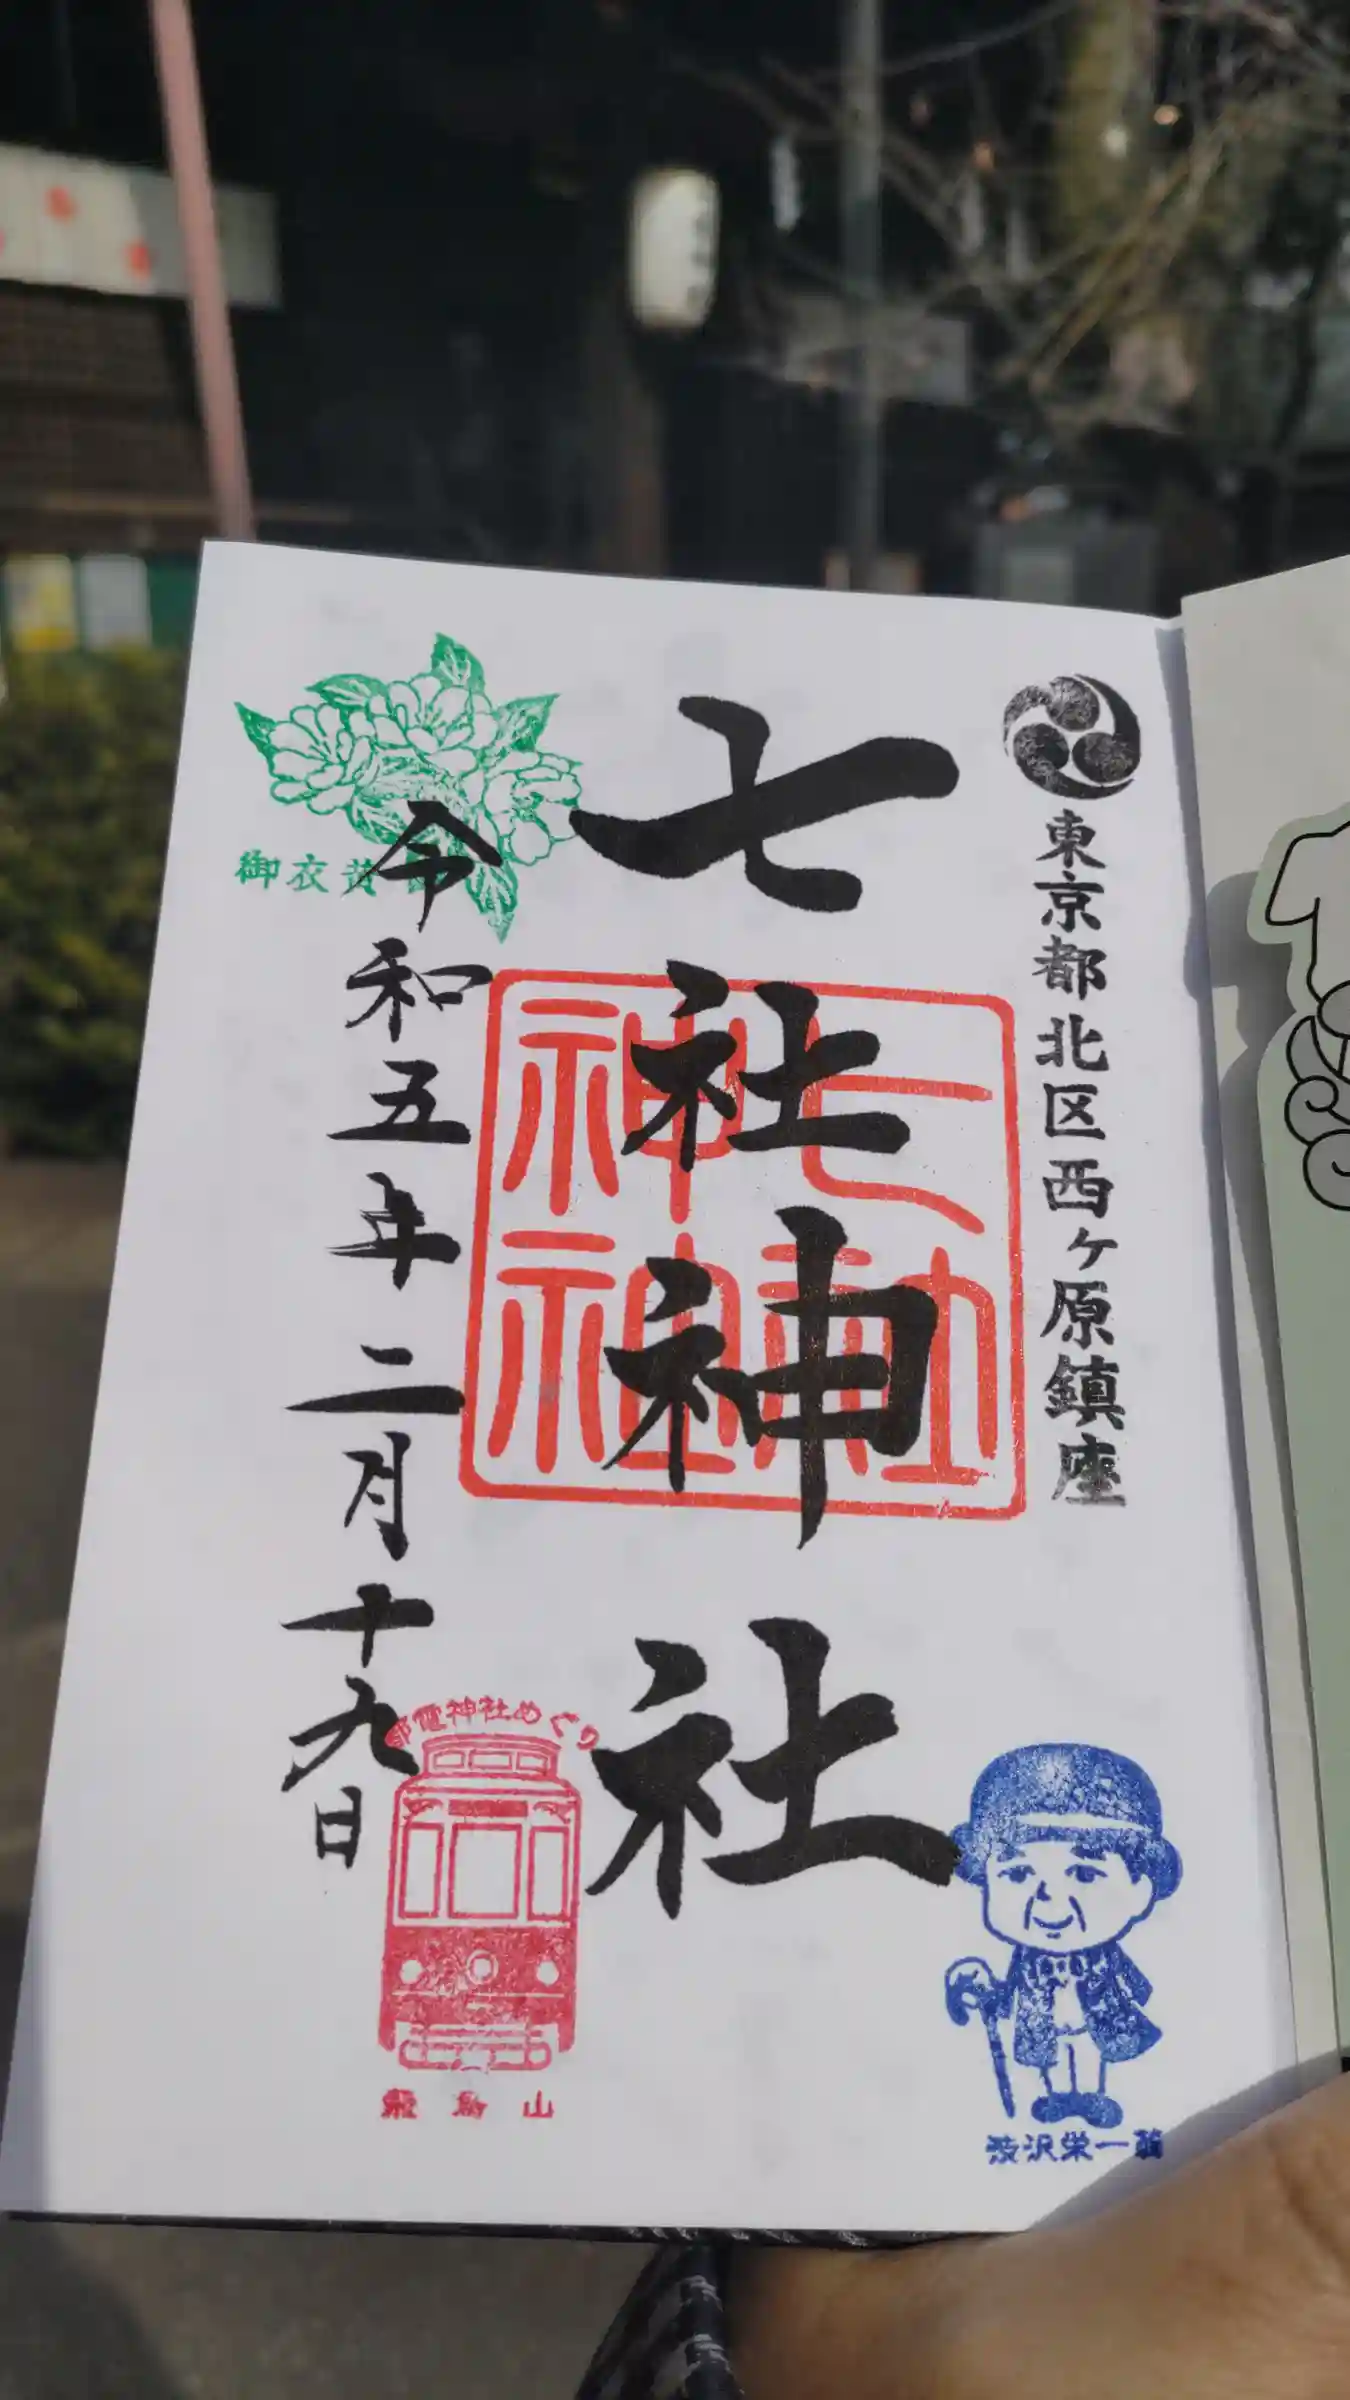 東京都北区西ヶ原鎮座
七社神社
七社神社
令和五年二月十九日
御衣黄
都電神社めぐり
飛鳥山
渋沢栄一翁